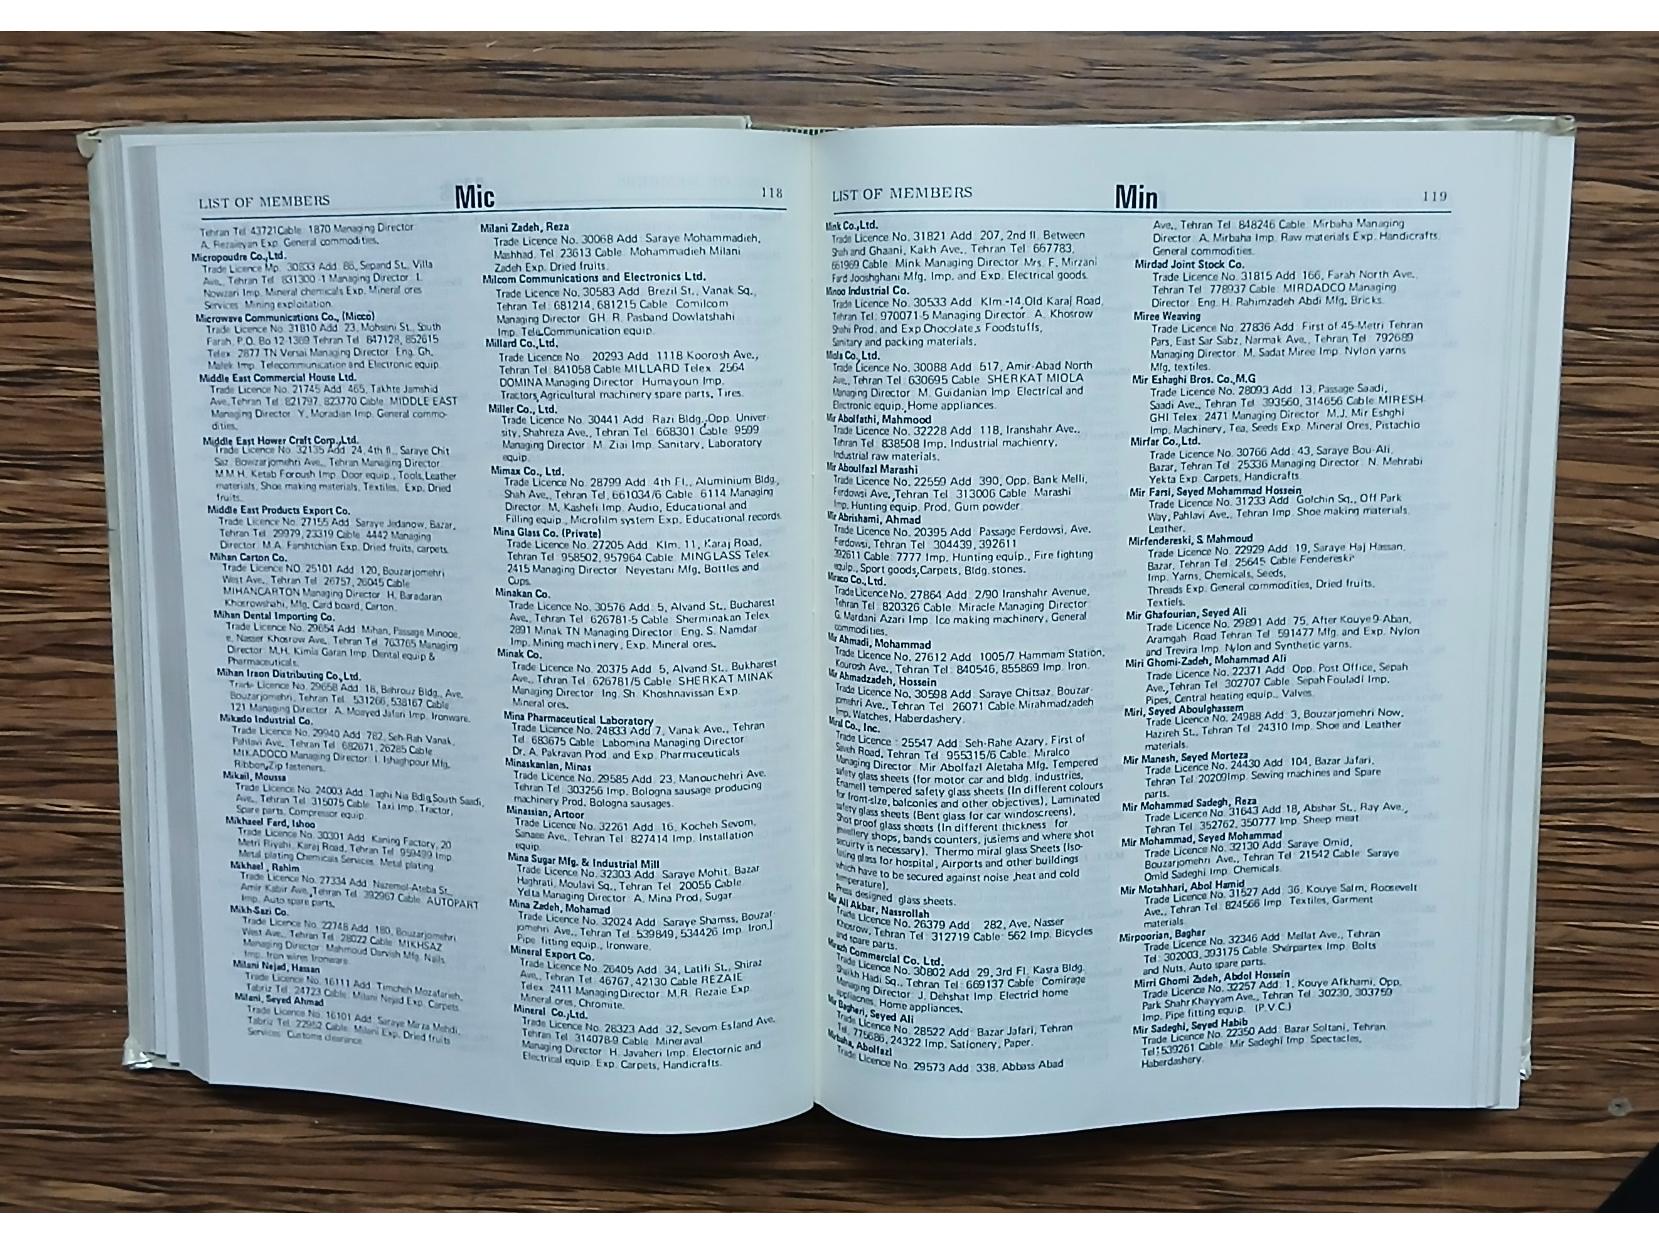 LIST OF MEMBERS
Mic
118
Tehran Tel 43721Cable 1870 Managing Director
A. Rezaieyan Exp. General commodities.
Micropoudre Co.,Ltd.
Trade Licence Mp. 30833 Add 86, Sepand St., Villa
Ave., Tehran Tel 831300-1 Managing Director I.
Nowzari Imp. Mineral chemicals Exp. Mineral ores
Services Mining exploitation.
Microwave Communications Co., (Micco)
Trade Licence No. 31810 Add 23, Mohseni St., South
Farah. P.O. Bo 12-1369 Tehran Tel 847128, 852615
Telex 2877 TN Versai Managing Director Eng. Gh.
Malek Imp. Telecommunication and Electronic equip.
Middle East Commercial House Ltd.
Trade Licence No. 21745 Add 465, Takhte Jamshid
Ave, Tehran Tel 821797, 823770 Cable MIDDLE EAST
Managing Director Y. Moradian Imp. General commo-
dities.
Middle East Hower Craft Corp.,Ltd.
Trade Licence No. 32135 Add 24, 4th fl., Saraye Chit
Saz Bowzarjomehri Ave., Tehran Managing Director
M.M.H. Ketab Foroush Imp. Door equip., Tools, Leather
materials, Shoe making materials, Textiles, Exp. Dried
fruits.
Middle East Products Export Co.
Trade Licence No. 27155 Add Saraye Jadanow, Bazar,
Tehran Tel. 29979, 23319 Cable 4442 Managing
Director M.A. Farshtchian Exp. Dried fruits, carpets.
Mihan Carton Co.
Trade Licence NO. 25101 Add 120, Bouzarjomehri
West Ave., Tehran Tel 26757, 26045 Cable
MIHANCARTON Managing Director H. Baradaran
Khosrowshahi, Mfg. Card board, Carton.
Mihan Dental Importing Co.
Trade Licence No. 29654 Add Mihan, Passage Minooe,
e, Nasser Khosrow Ave., Tehran Tel 763765 Managing
Director M.H. Kimia Garan Imp. Dental equip &
Pharmaceuticals.
Mihan Iraon Distributing Co.,Ltd.
Trade Licence No. 29658 Add. 18, Behrouz Bldg., Ave,
Bouzarjomehri, Tehran Tel. 531266, 538167 Cable
121 Managing Director A. Moayed Jafari Imp. Ironware.
Mikado Industrial Co.
Trade Licence No. 29940 Add 782, Seh-Rah Vanak,
Pahlavi Ave., Tehran Tel 682671, 26285 Cable
MIKADOCO Managing Director I. Ishaghpour Mfg.
Ribbon, Zip fasteners.
Mikail, Moussa
Trade Licence No. 24003 Add Taghi Nia Bdlg, South Saadi,
Ave., Tehran Tel 315075 Cable Taxi Imp. Tractor,
Spare parts, Compressor equip.
Mikhaeel Fard, Ishoo
Trade Licence No. 30301 Add Kaning Factory, 20
Metri Riyahi, Karaj Road, Tehran Tel 959499 Imp
Metal plating Chemicals Services Metal plating
Mikhael , Rahim
Trade Licence No. 27334 Add Nazemol-Ateba St.,
Amir Kabir Ave., Tehran Tel 392967 Cable AUTOPART
Imp. Auto spare parts.
Mikh-Sazi Co.
Trade Licence No. 22748 Add 180, Bouzarjomehri
West Ave., Tehran Tel 28022 Cable MIKHSAZ
Managing Director Mahmoud Darvish Mfg. Nails
Imp. Iron wires Ironware.
Milani Nejad, Hassan
Trade Licence No. 16111 Add Timcheh Mozafarieh,
Tabriz Tel 24723 Cable Milani Nejad Exp. Carpets
Milani, Seyed Ahmad
Trade Licence No. 16101 Add Saraye Mirza Mehdi,
Tabriz Tel 22952 Cable Milani Exp. Dried fruits
Services Customs clearance.
Milani Zadeh, Reza
Trade Licence No. 30068 Add Saraye Mohammadieh,
Mashhad Tel 23613 Cable Mohammadieh Milani
Zadeh Exp. Dried fruits.
Milcom Communications and Electronics Ltd.
Trade Licence No. 30583 Add Brezil St., Vanak Sq.,
Tehran Tel 681214, 681215 Cable Comilcom
Managing Director GH. R. Pasband Dowlatshahi
Imp. Tele Communication equip.
Millard Co.,Ltd,
Trade Licence No. 20293 Add 1118 Koorosh Ave.,
Tehran Tel 841058 Cable MILLARD Telex 2564
DOMINA Managing Director Humayoun Imp.
Tractors, Agricultural machinery spare parts, Tires.
Miller Co., Ltd.
Trade Licence No. 30441 Add Razi Bldg., Opp. Univer-
sity, Shahreza Ave., Tehran Tel 668301 Cable 9509
Managing Director M. Ziai Imp. Sanitary, Laboratory
equip.
Mimax Co., Ltd.
Trade Licence No. 28799 Add 4th Fl., Aluminium Bldg.,
Shah Ave., Tehran Tel, 661034/6 Cable 6114 Managing
Director M. Kashefi Imp. Audio, Educational and
Filling equip., Microfilm system Exp. Educational records.
Mina Glass Co. (Private)
Trade Licence No. 27205 Add Klm. 11, Karaj Road,
Tehran Tel 958502, 957964 Cable MINGLASS Telex
2415 Managing Director Neyestani Mfg, Bottles and
Cups.
Minakan Co.
Trade Licence No. 30576 Add 5, Alvand St., Bucharest
Ave., Tehran Tel 626781-5 Cable Sherminakan Telex
2891 Minak TN Managing Director Eng. S. Namdar
Imp. Mining machinery, Exp. Mineral ores.
Minak Co.
Trade Licence No. 20375 Add 5, Alvand St., Bukharest
Ave., Tehran Tel 626781/5 Cable SHERKAT MINAK
Managing Director Ing. Sh. Khoshnavissan Exp.
Mineral ores.
Mina Pharmaceutical Laboratory
Trade Licence No. 24833 Add 7, Vanak Ave., Tehran
Tel 683675 Cable Labomina Managing Director
Dr. A. Pakravan Prod and Exp Pharmaceuticals
Minaskanian, Minas
Trade Licence No. 29585 Add 23, Manouchehri Ave.
Tehran Tel 303256 Imp. Bologna sausage producing
machinery Prod. Bologna sausages.
Minassian, Artoor
Trade Licence No. 32261 Add 16, Kocheh Sevom,
Sanaee Ave., Tehran Tel 827414 Imp. Installation
equip.
Mina Sugar Mfg. & Industrial Mill
Trade Licence No. 32303 Add Saraye Mohit, Bazar
Haghrati, Moulavi Sq., Tehran Tel 20055 Cable
Yelta Managing Director A. Mina Prod, Sugar
Mina Zadeh, Mohamad
Trade Licence No. 32024 Add Saraye Shamss, Bouzar-
jomehri Ave., Tehran Tel 539849, 534426 Imp. Iron,l
Pipe fitting equip., Ironware.
Mineral Export Co.
Trade Licence No. 26405 Add 34, Latifi St., Shiraz
Ave., Tehran Tel 46767, 42130 Cable REZAIE
Telex 2411 Managing Director M.R. Rezaie Exp
Mineral ores, Chromite.
Mineral Co.,Ltd.
Trade Licence No. 28323 Add 32, Sevom Esland Ave.
Tehran Tel 314078-9 Cable Mineraval
Managing Director H. Javaheri Imp. Electornic and
Electrical equip. Exp. Carpets, Handicrafts.
LIST OF MEMBERS
Min
119
Mink Co.,Ltd.
Trade Licence No. 31821 Add 207, 2nd fl. Between
Shah and Ghaani, Kakh Ave., Tehran Tel 667783,
661969 Cable Mink Managing Director Mrs. F. Mirzani
Fard Jooshghani Mfg, Imp. and Exp. Electrical goods.
Minoo Industrial Co.
Trade Licence No. 30533 Add Klm -14, Old Karaj Road,
Tehran Tel 970071-5 Managing Director A. Khosrow
Shahi Prod. and Exp Chocolate,s Foodstuffs,
Sanitary and packing materials.
Miola Co., Ltd.
Trade Licence No. 30088 Add 517, Amir-Abad North
Ave., Tehran Tel 630695 Cable SHERKAT MIOLA
Managing Director M. Guidanian Imp Electrical and
Electronic equip., Home appliances.
Mir Abolfathi, Mahmood
Trade Licence No. 32228 Add 118, Iranshahr Ave.,
Tehran Tel 838508 Imp. Industrial machienry,
Industrial raw materials.
Mir Aboulfazl Marashi
Trade Licence No. 22559 Add 390, Opp. Bank Melli,
Ferdowsi Ave., Tehran Tel 313006 Cable Marashi
Imp. Hunting equip. Prod. Gum powder
Mir Abrishami, Ahmad
Trade Licence No. 20395 Add Passage Ferdowsi, Ave.
Ferdowsi, Tehran Tel 304439, 392611
392611 Cable 7777 Imp. Hunting equip., Fire fighting
equip., Sport goods, Carpets, Bldg. stones.
Miraco Co., Ltd.
Trade Licence No. 27864 Add 2/90 Iranshahr Avenue,
Tehran Tel 820326 Cable Miracle Managing Director
G. Mardani Azari Imp Ice making machinery, General
commodities.
Mir Ahmadi, Mohammad
Trade Licence No. 27612 Add 1005/7 Hammam Station,
Kourosh Ave., Tehran Tel 840546, 855869 Imp. Iron.
Mir Ahmadzadeh, Hossein
Trade Licence No. 30598 Add Saraye Chitsaz, Bouzar-
jomehri Ave., Tehran Tel 26071 Cable Mirahmadzadeh
Imp. Watches, Haberdashery.
Miral Co., Inc.
Trade Licence 25547 Add Seh-Rahe Azary, First of
Saveh Road, Tehran Tel 955315/6 Cable Miralco
Managing Director Mir Abolfazl Aletaha Mfg. Tempered
safety glass sheets (for motor car and bldg. industries,
Enamel) tempered safety glass sheets (In different colours
for front-size, balconies and other objectives), Laminated
safety glass sheets (Bent glass for car windoscreens),
Shot proof glass sheets (In different thickness for
jewellery shops, bands counters, jusiems and where shot
security is necessary). Thermo miral glass Sheets (Iso-
lating glass for hospital, Airports and other buildings
which have to be secured against noise ,heat and cold
temperature).
Press designed glass sheets.
Mir Ali Akbar, Nassrollah
Trade Licence No. 26379 Add 282, Ave. Nasser
Khosrow, Tehran Tel 312719 Cable 562 Imp. Bicycles
and spare parts.
Commercial Co. Ltd.
Trade Licence No. 30802 Add 29, 3rd Fl. Kasra Bldg.
Shaikh Hadi Sq., Tehran Tel 669137 Cable Comirage
Managing Director J. Dehshat Imp Electricl home
appliacnes, Home appliances.
Mir Bagheri, Seyed Ali
Trade Licence No. 28522 Add Bazar Jafari, Tehran
Tel. 775686, 24322 Imp. Sationery, Paper.
Mirbaha, Abolfazl
Trade Licence No. 29573 Add 338, Abbass Abad
Ave., Tehran Tel 848246 Cable Mirbaha Managing
Director A. Mirbaha Imp. Raw materials Exp. Handicrafts.
General commodities.
Mirdad Joint Stock Co.
Trade Licence No. 31815 Add 166, Farah North Ave.,
Tehran Tel 778937 Cable MIRDADCO Managing
Director Eng. H. Rahimzadeh Abdi Mfg, Bricks.
Miree Weaving
Trade Licence No. 27836 Add First of 45-Metri Tehran
Pars, East Sar Sabz, Narmak Ave., Tehran Tel 792689
Managing Director M. Sadat Miree Imp. Nylon yarns
Mfg. textiles.
Mir Eshaghi Bros. Co.,M.G
Trade Licence No. 28093 Add 13, Passage Saadi,
Saadi Ave., Tehran Tel 393560, 314656 Cable MIRESH-
GHI Telex 2471 Managing Director M.J. Mir Eshghi
Imp. Machinery, Tea, Seeds Exp. Mineral Ores, Pistachio
Mirfar Co.,Ltd.
Trade Licence No. 30766 Add 43, Saraye Bou-Ali,
Bazar, Tehran Tel 25336 Managing Director N. Mehrabi
Yekta Exp. Carpets, Handicrafts.
Mir Farsi, Seyed Mohammad Hossein
Trade Licence No. 31233 Add Golchin Sq., Off Park
Way, Pahlavi Ave., Tehran Imp Shoe making materials,
Leather.
Mirfendereski, S. Mahmoud
Trade Licence No. 22929 Add 19, Saraye Haj Hassan,
Bazar, Tehran Tel 25645 Cable Fendereski
Imp. Yarns, Chemicals, Seeds,
Threads Exp. General commodities, Dried fruits,
Textiels.
Mir Ghafourian, Seyed Ali
Trade Licence No. 29891 Add 75, After Kouye 9-Aban,
Aramgah Road Tehran Tel 591477 Mfg. and Exp. Nylon
and Trevira Imp. Nylon and Synthetic yarns.
Miri Ghomi-Zadeh, Mohammad Ali
Trade Licence No. 22371 Add Opp. Post Office, Sepah
Ave., Tehran Tel 302707 Cable Sepah Fouladi Imp.
Pipes, Central heating equip., Valves.
Miri, Seyed Aboulghassem
Trade Licence No. 24988 Add 3, Bouzarjomehri Now,
Hazireh St., Tehran Tel 24310 Imp. Shoe and Leather
materials.
Mir Manesh, Seyed Morteza
Trade Licence No. 24430 Add 104, Bazar Jafari,
Tehran Tel 20209Imp. Sewing machines and Spare
parts.
Mir Mohammad Sadegh, Reza
Trade Licence No. 31643 Add 18, Abshar St., Ray Ave.,
Tehran Tel 352762, 350777 Imp. Sheep meat
Mir Mohammad, Seyed Mohammad
Trade Licence No. 32130 Add Saraye Omid,
Bouzarjomehri Ave., Tehran Tel 21542 Cable Saraye
Omid Sadeghi Imp. Chemicals.
Mir Motahhari, Abol Hamid
Trade Licence No. 31527 Add 36, Kouye Salm, Roosevelt
Ave., Tehran Tel 824566 Imp. Textiles, Garment
materials.
Mirpoorian, Bagher
Trade Licence No. 32346 Add Mellat Ave., Tehran
Tel 302003, 393175 Cable Sherpartex Imp. Bolts
and Nuts, Auto spare parts.
Mirri Ghomi Zadeh, Abdol Hossein
Trade Licence No. 32257 Add 1, Kouye Afkhami, Opp.
Park Shahr Khayyam Ave., Tehran Tel 30230, 303759
Imp. Pipe fitting equip. (P.V.C.)
Mir Sadeghi, Seyed Habib
Trade Licence No. 22350 Add Bazar Soltani, Tehran
Tel 539261 Cable Mir Sadeghi Imp Spectacles,
Haberdashery.